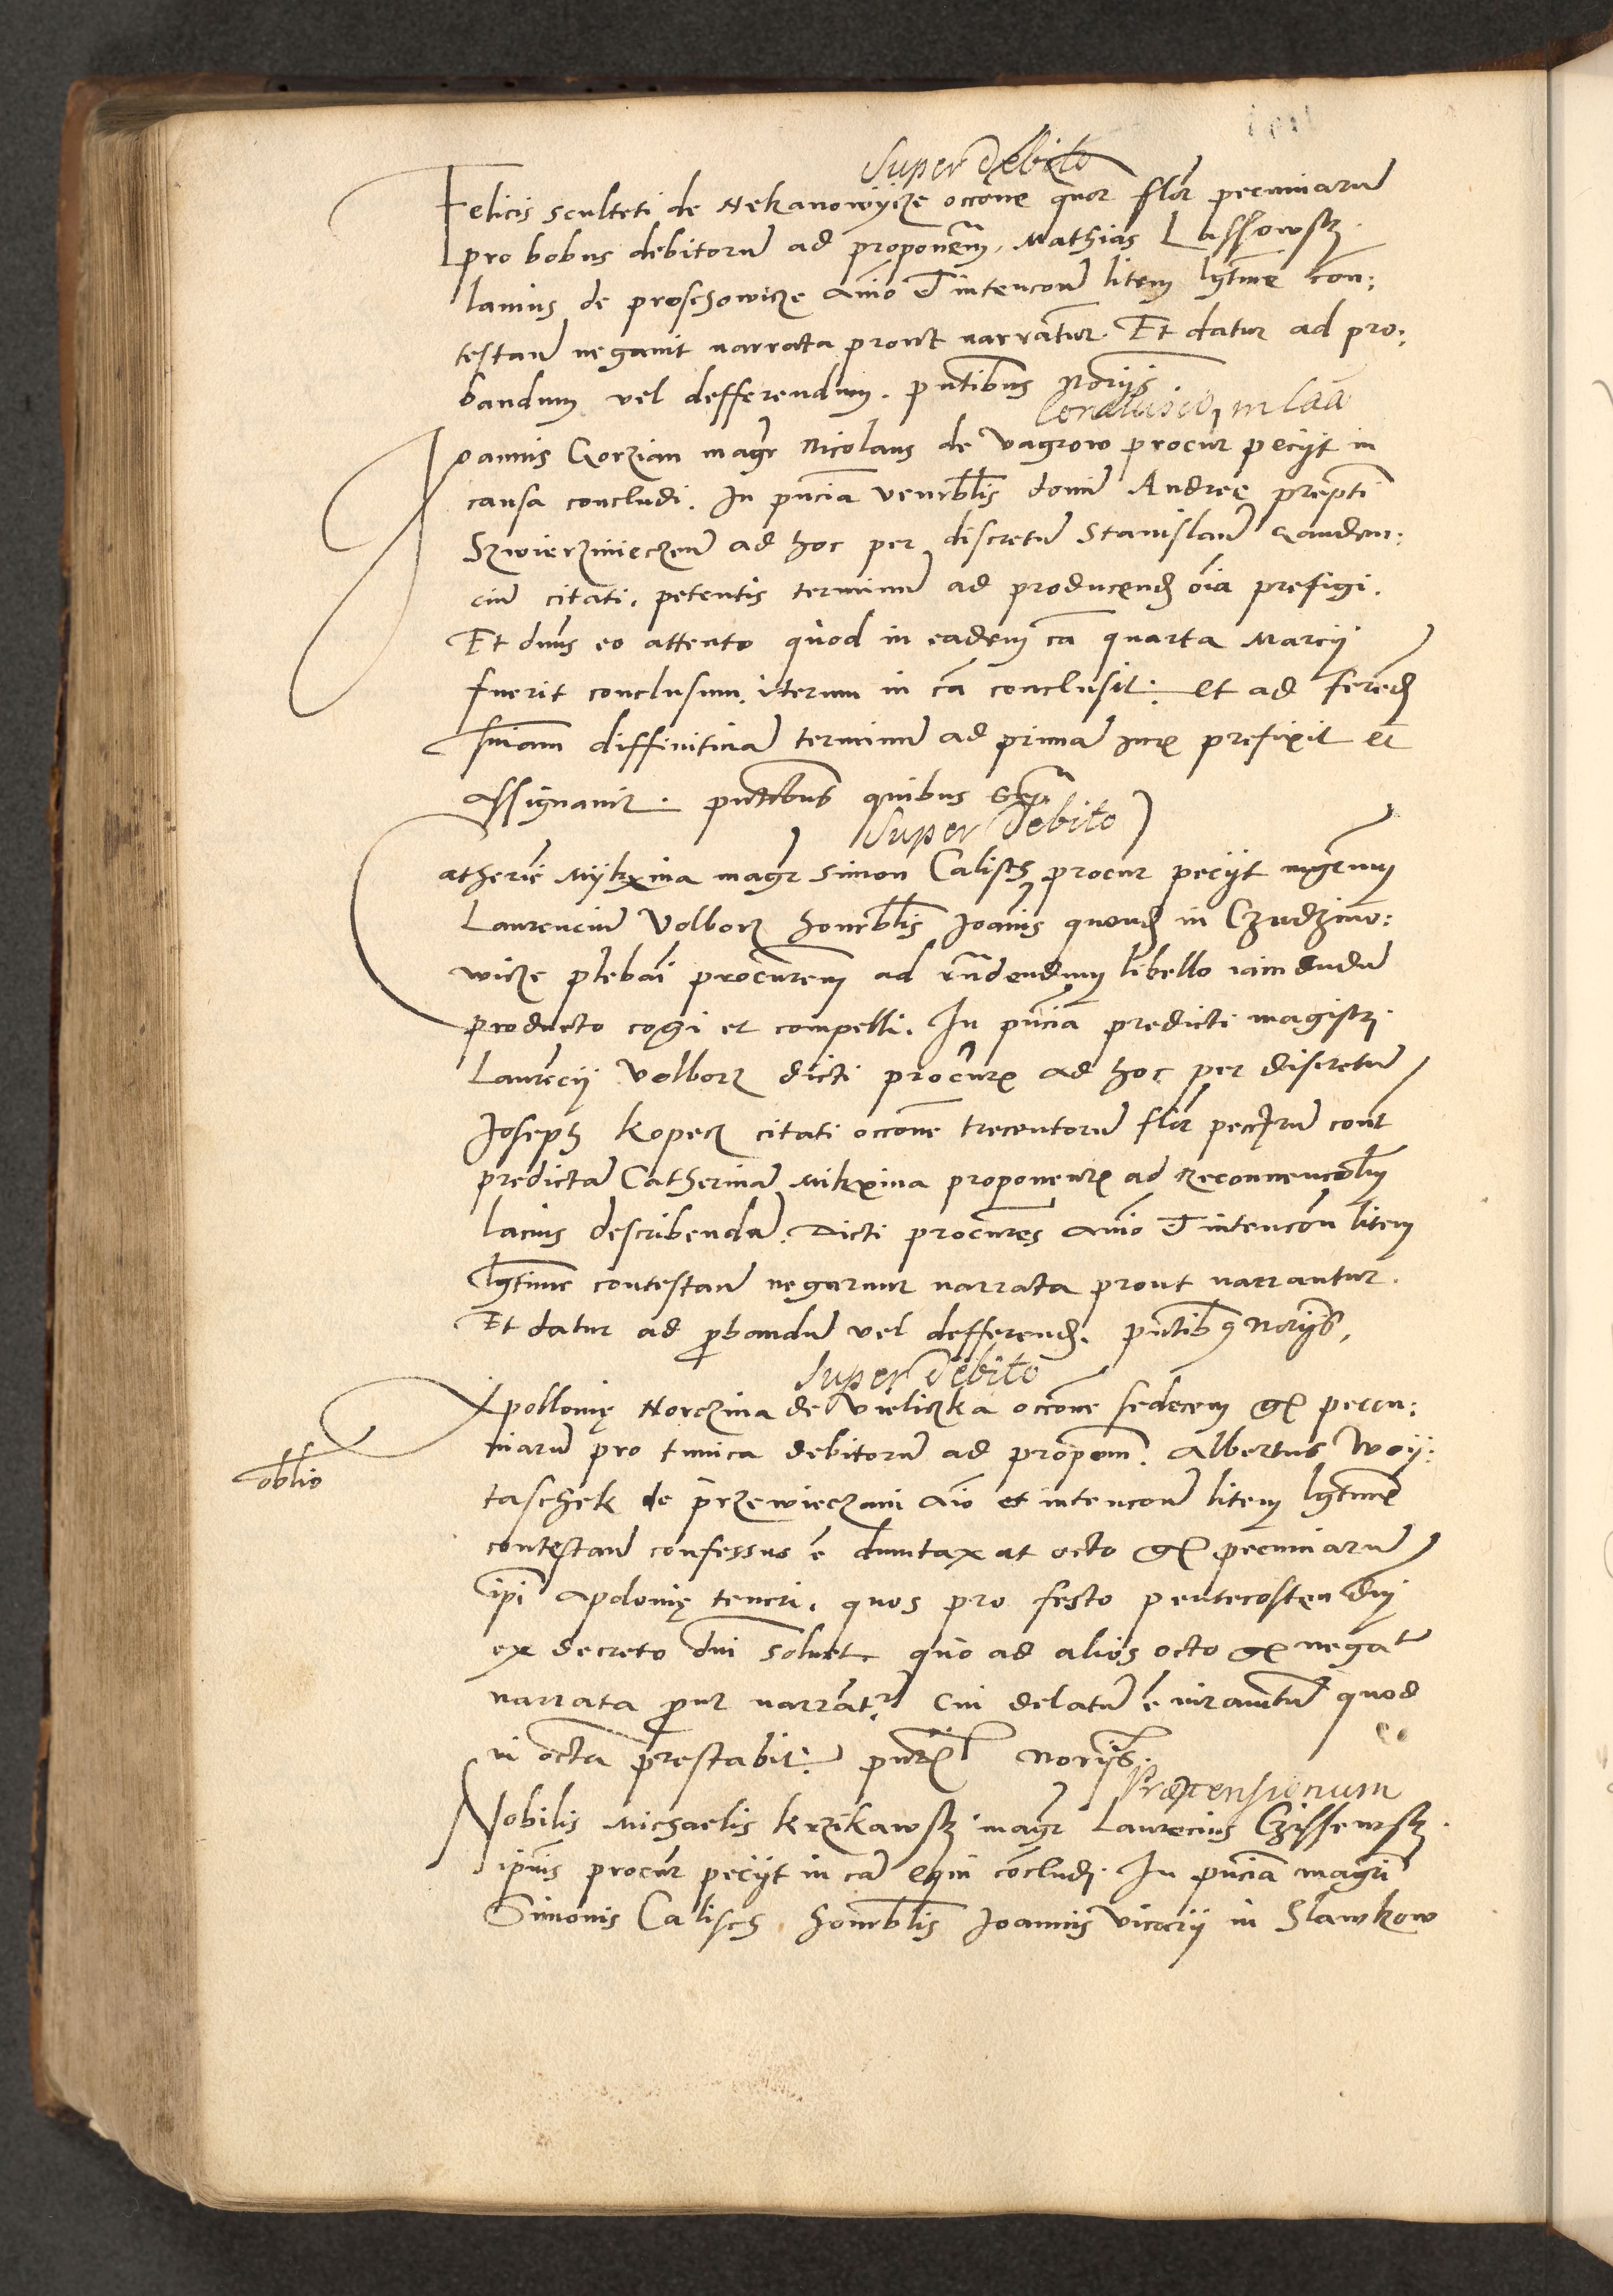 Super debito
Felicis sculteti de Nekanowycze occone quor flor pecuniarum
pro bobus debitorum ad proponem. Mathias Lassowsky
lanius de proschowicze animo et intencone litem lgtime con:
testan negavit narrata prout narrantur. Et datur ad pro:
bandum vel defferendum. pntibus noriis
Conclusio in caa
Joannis Gorzian magr Nicolaus de Vagrow procur peciit in
causa concludi. In pncia venerblis domi Andree prepti
Szwierzinieczen ad hoc per discretum Stanislaum Gauden:
cium citati. petentis terminum ad producend oia prefigi.
Et dnus eo attento quod in eadem ca quarta Marcii
fuerit conclusum, iterum in ca conclusit. et ad ferend
sniam diffinitivam terminum ad primam iurx prefixit et
assignavit. pntibus quibus supra
Super debito
Catherine Mykxina magr Simon Calisch procur peciit mgrum
Laurencium Volborz honorblis Joannis quond in Czudzino:
wicze plebani procuratorem ad rndendum libello iamdudum
producto cogi et compelli. In pncia predicti magistri
Laurecii Volborz dicti procurx ad hoc per discretum
Joseph Kopecz citati occone trecentorum flor pecuniarum contra
predictam Catherinam Mikxina proponentx ad reconvencolem
lacius describendam. Dicti procuratores animo et intencon litem
lgtime contestan negarunt narrata prout narrantur.
Et datur ad probandum vel defferend. pntibus noriis.
Super debito
Apollonię Norczina de Vieliczka occone sedecem gr pecu:
niarum pro tunica debitorum ad proponem. Albertus Woy:
oblio
taschek de przewieczani aio et intencone litem lgtime
contestand confessus e dumtaxat octo gr pecuniarum
ipi Apolonię teneri. quos pro festo pentecosten dni
ex decreto dni solvet quo ad alios octo gr negat
narrata prout narrantur. Cui delatum e iuramentum quod
in octa prestabit. pntx noriis.
Præpensionum
Nobilis Michaelis Krzikawsky magr Laurecius Czissewsky
ipius procur peciit in ca eqin concludi. In pncia magri
Simonis Calisch honorblis Joannis vicarii in Slawkow